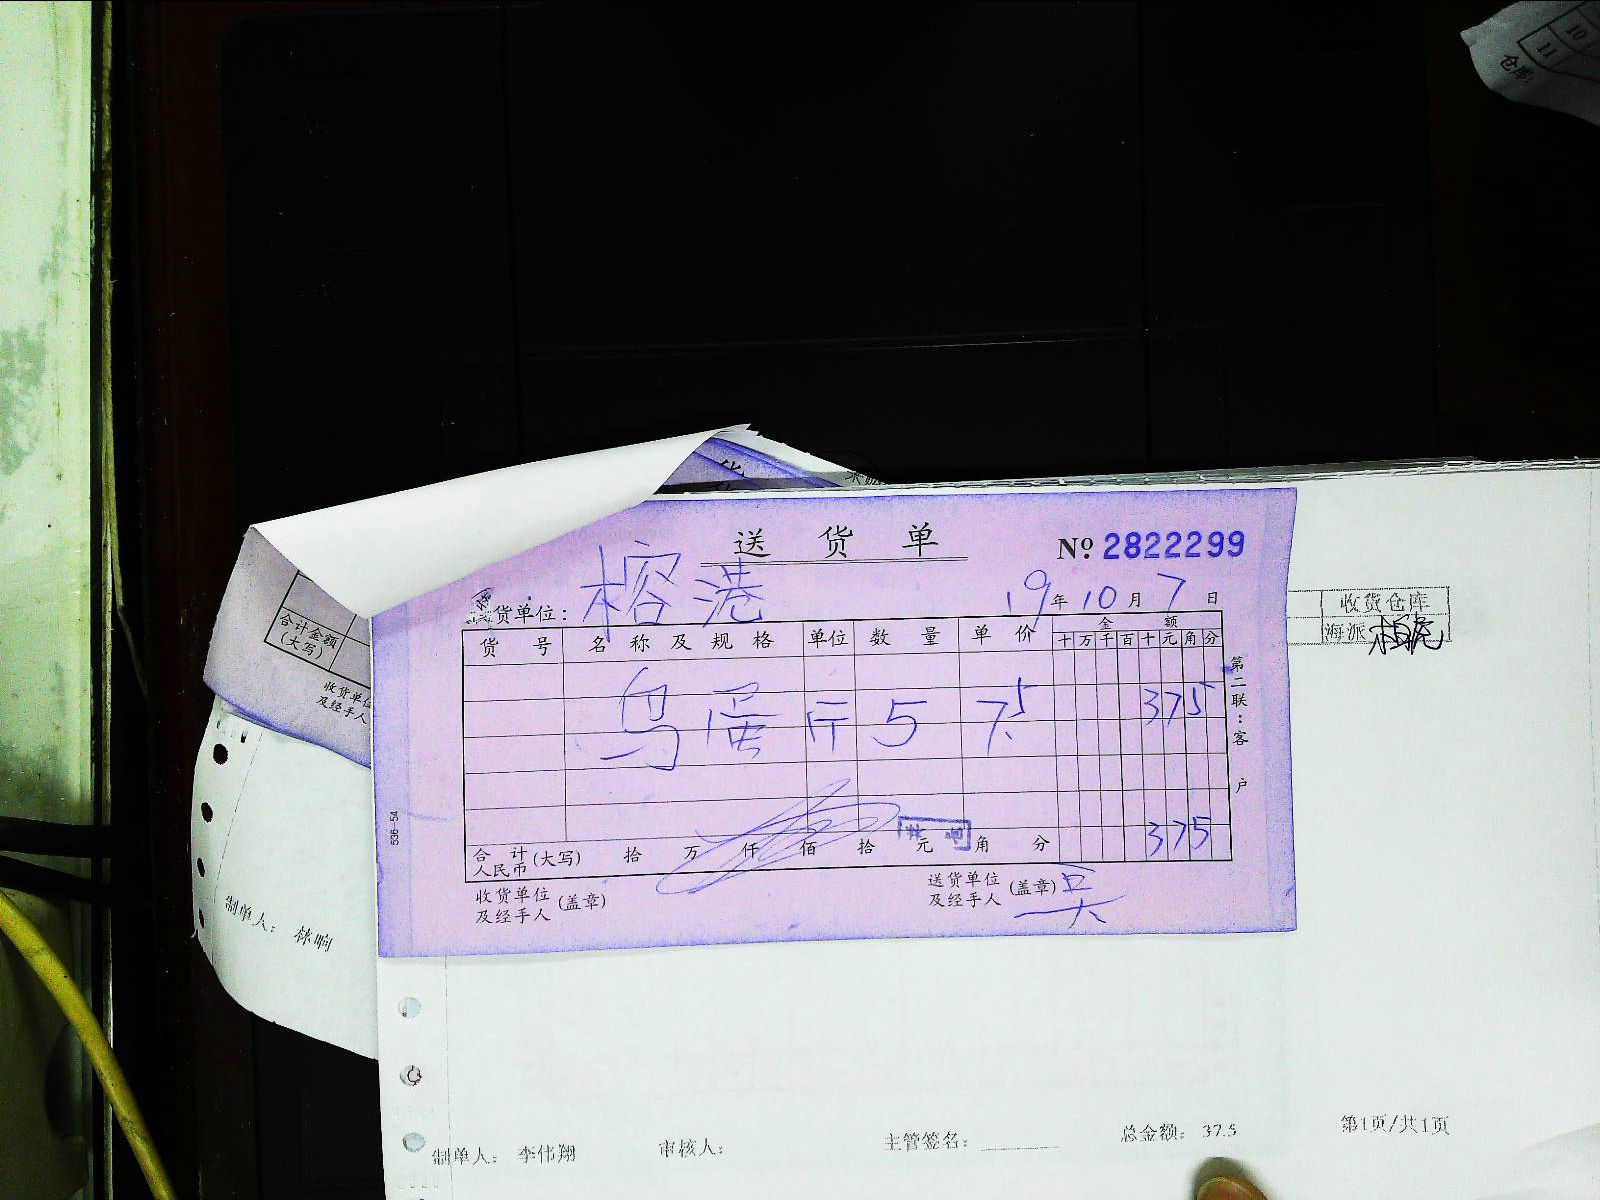 10
11
仓库:
送 货 单
№ 2822299
货单位: 榕港
19 年 10 月 7 日
收货仓库
海派
货 号 名 称 及 规 格 单位 数 量 单 价 金 额
十 万 千 百 十 元 角 分
乌蛋 斤 5 7.5 375
第二联:客户
合 计 人民币 (大写) 拾 万 仟 佰 拾 元 角 分 375
收货单位及经手人 (盖章)
送货单位及经手人 (盖章) 吴
536-54
合计金额
(大写)
收货单位
及经手人
制单人:
制单人: 李伟翔 审核人: 主管签名: 总金额: 37.5 第1页/共1页